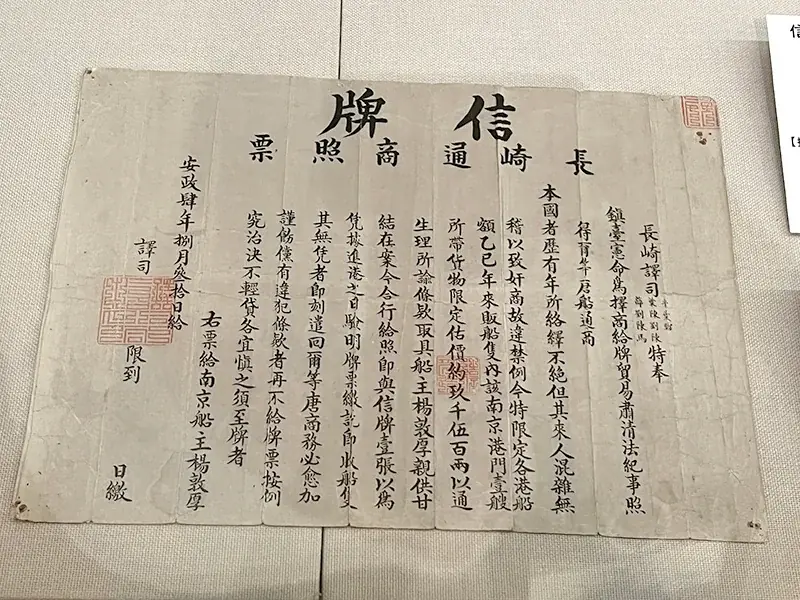 信牌
長崎通商照票
長崎譯司
特奉
鎮臺憲命爲擇商給牌貿易肅清法紀事照
得爾等唐船通商
本國者歷有年所絡繹不絕但其來人混雜無
稽以致奸商故違禁例今特限定各港船
額乙巳年來販船隻內該南京港門壹艘
所帶貨物限定估價約玖千伍百兩以通
生理所諭條款取具船主楊敦厚親供甘
結在案今合行給照即與信牌壹張以爲
凭據進港之日驗明牌票繳訖即收船隻
其無凭者即刻遣回爾等唐商務必愈加
謹飭儻有違犯條款者再不給牌票按例
究治決不輕貸各宜愼之須至牌者
右票給南京船主楊敦厚
安政肆年捌月叄拾日給
譯司
限到
日繳
信